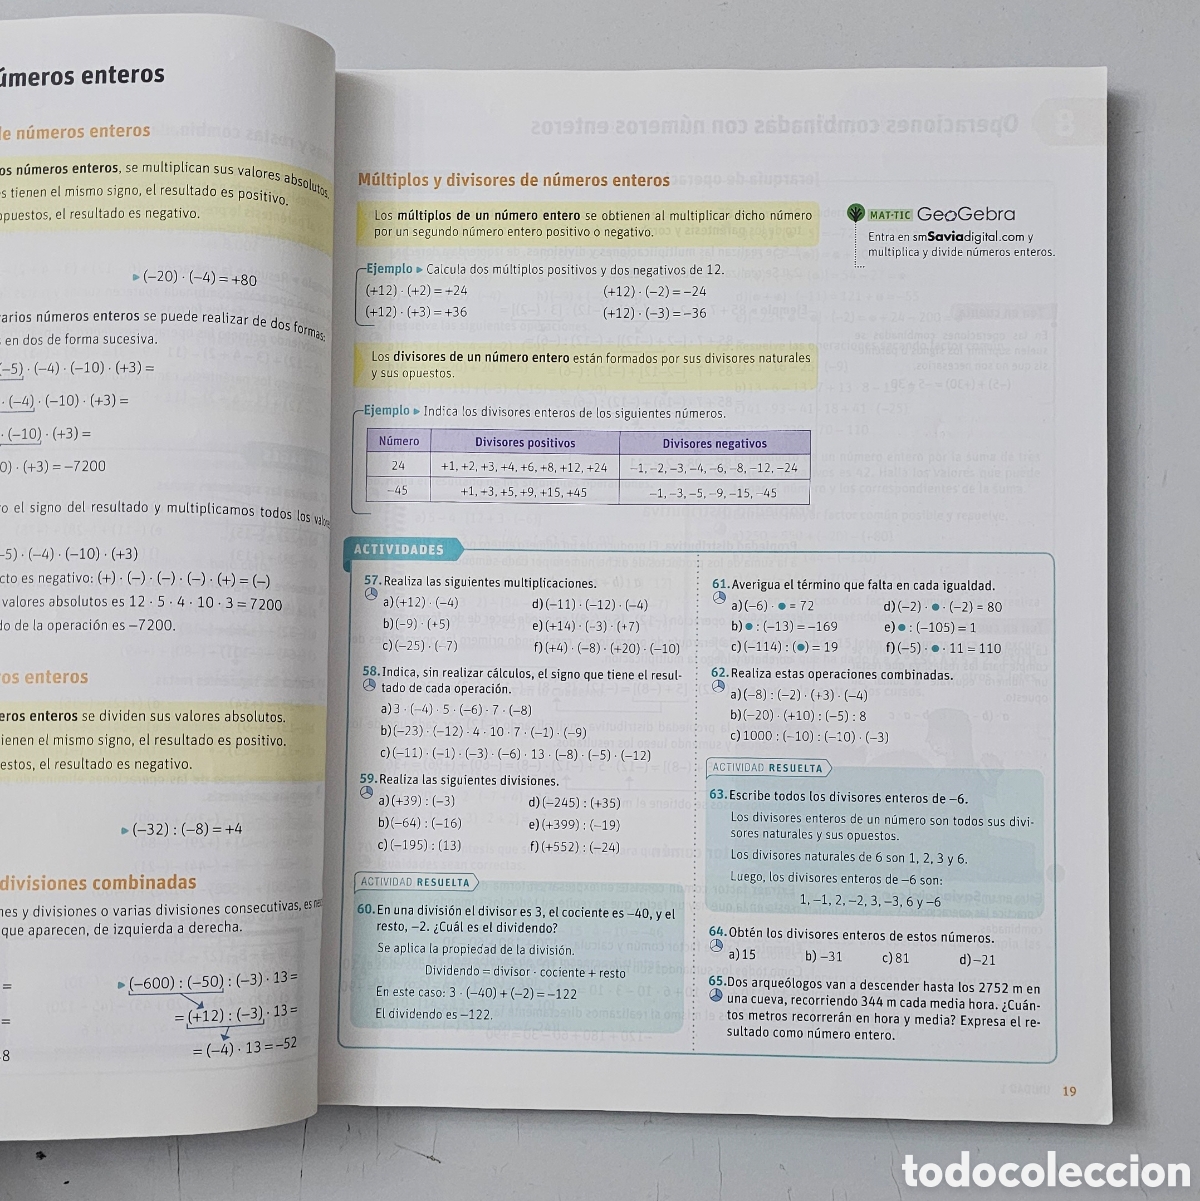 úmeros enteros
de números enteros
os números enteros, se multiplican sus valores absolutos.
s tienen el mismo signo, el resultado es positivo.
opuestos, el resultado es negativo.
▸ (−20) · (−4) = +80
varios números enteros se puede realizar de dos formas:
en dos de forma sucesiva.
−5) · (−4) · (−10) · (+3) =
· (−4) · (−10) · (+3) =
· (−10) · (+3) =
0) · (+3) = −7200
o el signo del resultado y multiplicamos todos los
−5) · (−4) · (−10) · (+3)
cto es negativo: (+) · (−) · (−) · (−) · (+) = (−)
valores absolutos es 12 · 5 · 4 · 10 · 3 = 7200
do de la operación es −7200.
os enteros
eros enteros se dividen sus valores absolutos.
ienen el mismo signo, el resultado es positivo.
estos, el resultado es negativo.
▸ (−32) : (−8) = +4
divisiones combinadas
nes y divisiones o varias divisiones consecutivas, es
que aparecen, de izquierda a derecha.
= ▸ (−600) : (−50) : (−3) · 13 =
= = (+12) : (−3) · 13 =
8 = (−4) · 13 = −52
Múltiplos y divisores de números enteros
Los múltiplos de un número entero se obtienen al multiplicar dicho número
por un segundo número entero positivo o negativo.
MAT-TIC GeoGebra
Entra en smSaviadigital.com y
multiplica y divide números enteros.
Ejemplo ▸ Calcula dos múltiplos positivos y dos negativos de 12.
(+12) · (+2) = +24 (+12) · (−2) = −24
(+12) · (+3) = +36 (+12) · (−3) = −36
Los divisores de un número entero están formados por sus divisores naturales
y sus opuestos.
Ejemplo ▸ Indica los divisores enteros de los siguientes números.
Número Divisores positivos Divisores negativos
24 +1, +2, +3, +4, +6, +8, +12, +24 −1, −2, −3, −4, −6, −8, −12, −24
−45 +1, +3, +5, +9, +15, +45 −1, −3, −5, −9, −15, −45
ACTIVIDADES
57. Realiza las siguientes multiplicaciones.
a) (+12) · (−4) d) (−11) · (−12) · (−4)
b) (−9) · (+5) e) (+14) · (−3) · (+7)
c) (−25) · (−7) f) (+4) · (−8) · (+20) · (−10)
58. Indica, sin realizar cálculos, el signo que tiene el resul-
tado de cada operación.
a) 3 · (−4) · 5 · (−6) · 7 · (−8)
b) (−23) · (−12) · 4 · 10 · 7 · (−1) · (−9)
c) (−11) · (−1) · (−3) · (−6) · 13 · (−8) · (−5) · (−12)
59. Realiza las siguientes divisiones.
a) (+39) : (−3) d) (−245) : (+35)
b) (−64) : (−16) e) (+399) : (−19)
c) (−195) : (13) f) (+552) : (−24)
ACTIVIDAD RESUELTA
60. En una división el divisor es 3, el cociente es −40, y el
resto, −2. ¿Cuál es el dividendo?
Se aplica la propiedad de la división.
Dividendo = divisor · cociente + resto
En este caso: 3 · (−40) + (−2) = −122
El dividendo es −122.
61. Averigua el término que falta en cada igualdad.
a) (−6) · ● = 72 d) (−2) · ● · (−2) = 80
b) ● : (−13) = −169 e) ● : (−105) = 1
c) (−114) : (●) = 19 f) (−5) · ● · 11 = 110
62. Realiza estas operaciones combinadas.
a) (−8) : (−2) · (+3) · (−4)
b) (−20) · (+10) : (−5) : 8
c) 1000 : (−10) : (−10) · (−3)
ACTIVIDAD RESUELTA
63. Escribe todos los divisores enteros de −6.
Los divisores enteros de un número son todos sus divi-
sores naturales y sus opuestos.
Los divisores naturales de 6 son 1, 2, 3 y 6.
Luego, los divisores enteros de −6 son:
1, −1, 2, −2, 3, −3, 6 y −6
64. Obtén los divisores enteros de estos números.
a) 15 b) −31 c) 81 d) −21
65. Dos arqueólogos van a descender hasta los 2752 m en
una cueva, recorriendo 344 m cada media hora. ¿Cuán-
tos metros recorrerán en hora y media? Expresa el re-
sultado como número entero.
19
todocoleccion